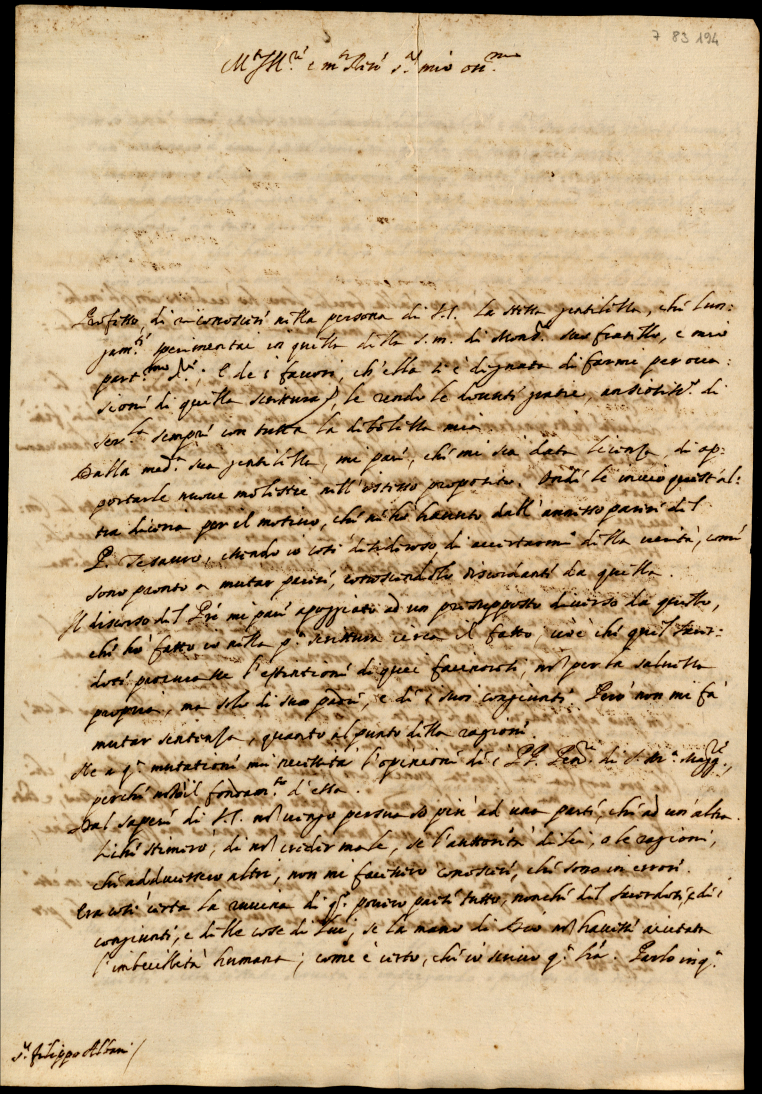 7 83 194
M.to Ill.re e m.to R.do s.r mio oss.mo
Profitto di riconoscere nella persona di V.S. la stessa gentilezza, che lun:
gam.te sperimentai in quella della s.m. di Mons.r suo fratello, e mio
part.mo S.re; e de i favori, ch'ella si è dignata di farmi per occa:
sione di questa scrittura, le rendo le dovute gratie,
ser.la sempre con tutta la debolezza mia.
Dalla med.a sua gentilezza, mi pare, che mi sia data licenza, di ap:
portarle nuove molestie nell'istesso proposito. Onde le invio quest'al:
tra diceria per el motivo, che n'ho havuto dall'annesso parere del
P. Tesauro, essendo io così desideroso di accertarmi della verità, come
sono pronto a mutar parere, conoscendolo discordante da quella.
Il discorso del P.re mi pare appoggiato ad un presupposto diverso da quello,
che hò fatto io nella p.a scrittura circa il fatto; cioè che quel Sacer:
dote procurasse l'estintione di quei facinorosi, non per la salvezza
propria, ma solo di suo padre, e di i suoi congiunti. Però non mi fà
mutar sentenza, quanto al punto della ragione.
Ne a q.a mutatione mi necessita l'opinione di i PP. Pen.ri di S. M.a Magg.re,
perche non sò il fondam.to d'essa.
Dal sapere di V.S. non vengo persuaso più ad una parte, che ad un'altra.
che stimerò, di non creder male, se l'auttorità di lei, o le ragioni,
che adducessero altri, non mi facessero conoscere, che sono in errore.
Era così certa la ruina di q.o povero paese tutto, nonche del sacerdote, e di i
congiunti, e delle cose di lui, se la mano di Dio non havesse aiutata
l'imbecillità humana; come è certo, che io scrivo q.a hra. Perlo in q.a
S.r Filippo Albani